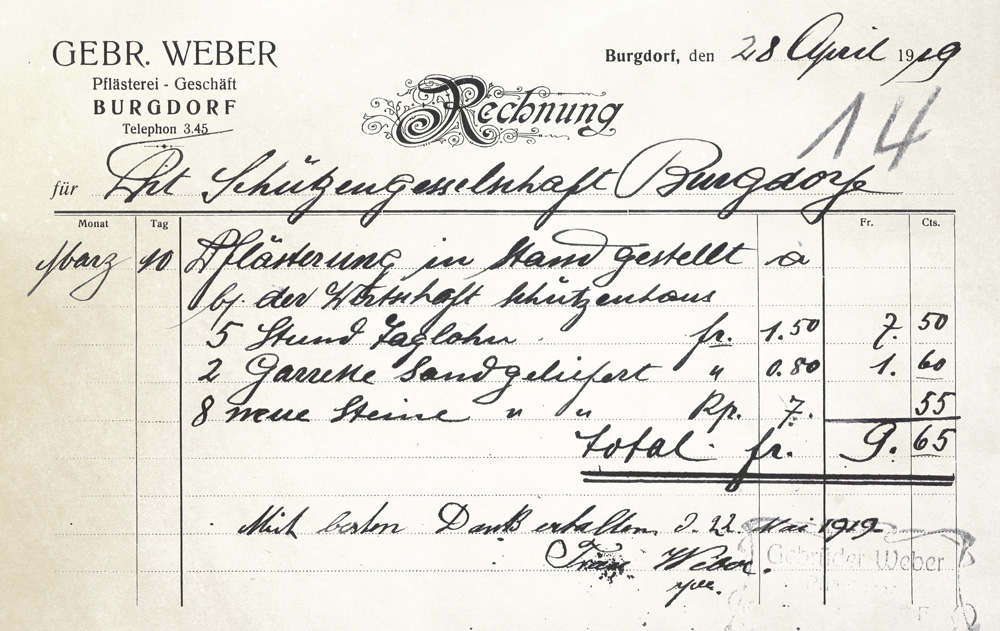 GEBR. WEBER
Pflästerei - Geschäft
BURGDORF
Telephon 3.45
Burgdorf, den 28 April 1919
Rechnung
14
für Dit Schützengesselschaft Burgdorf
Monat Tag Fr. Cts.
Marz 10 Pflästerung in Stand gestellt à
bj. der Wirtschaft Schützenhaus
5 Stund Taglohn fr. 1.50 7. 50
2 Garrette Sand geliefert " 0.80 1. 60
8 neue Steine " " Rp. 7. 55
total fr. 9. 65
Mit besten Dank erhalten d. 22 Mai 1919
Weber.
Gebrüder Weber